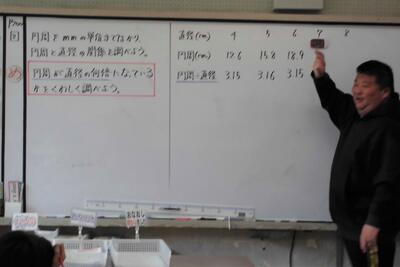 円周をmmの単位まではかり、
円周と直径の関係を調べよう。
め
円周が直径の何倍になっている
かをくわしく調べよう。
直径(cm) 4 5 6 7 8
円周(cm) 12.6 15.8 18.9
円周÷直径 3.15 3.16 3.15